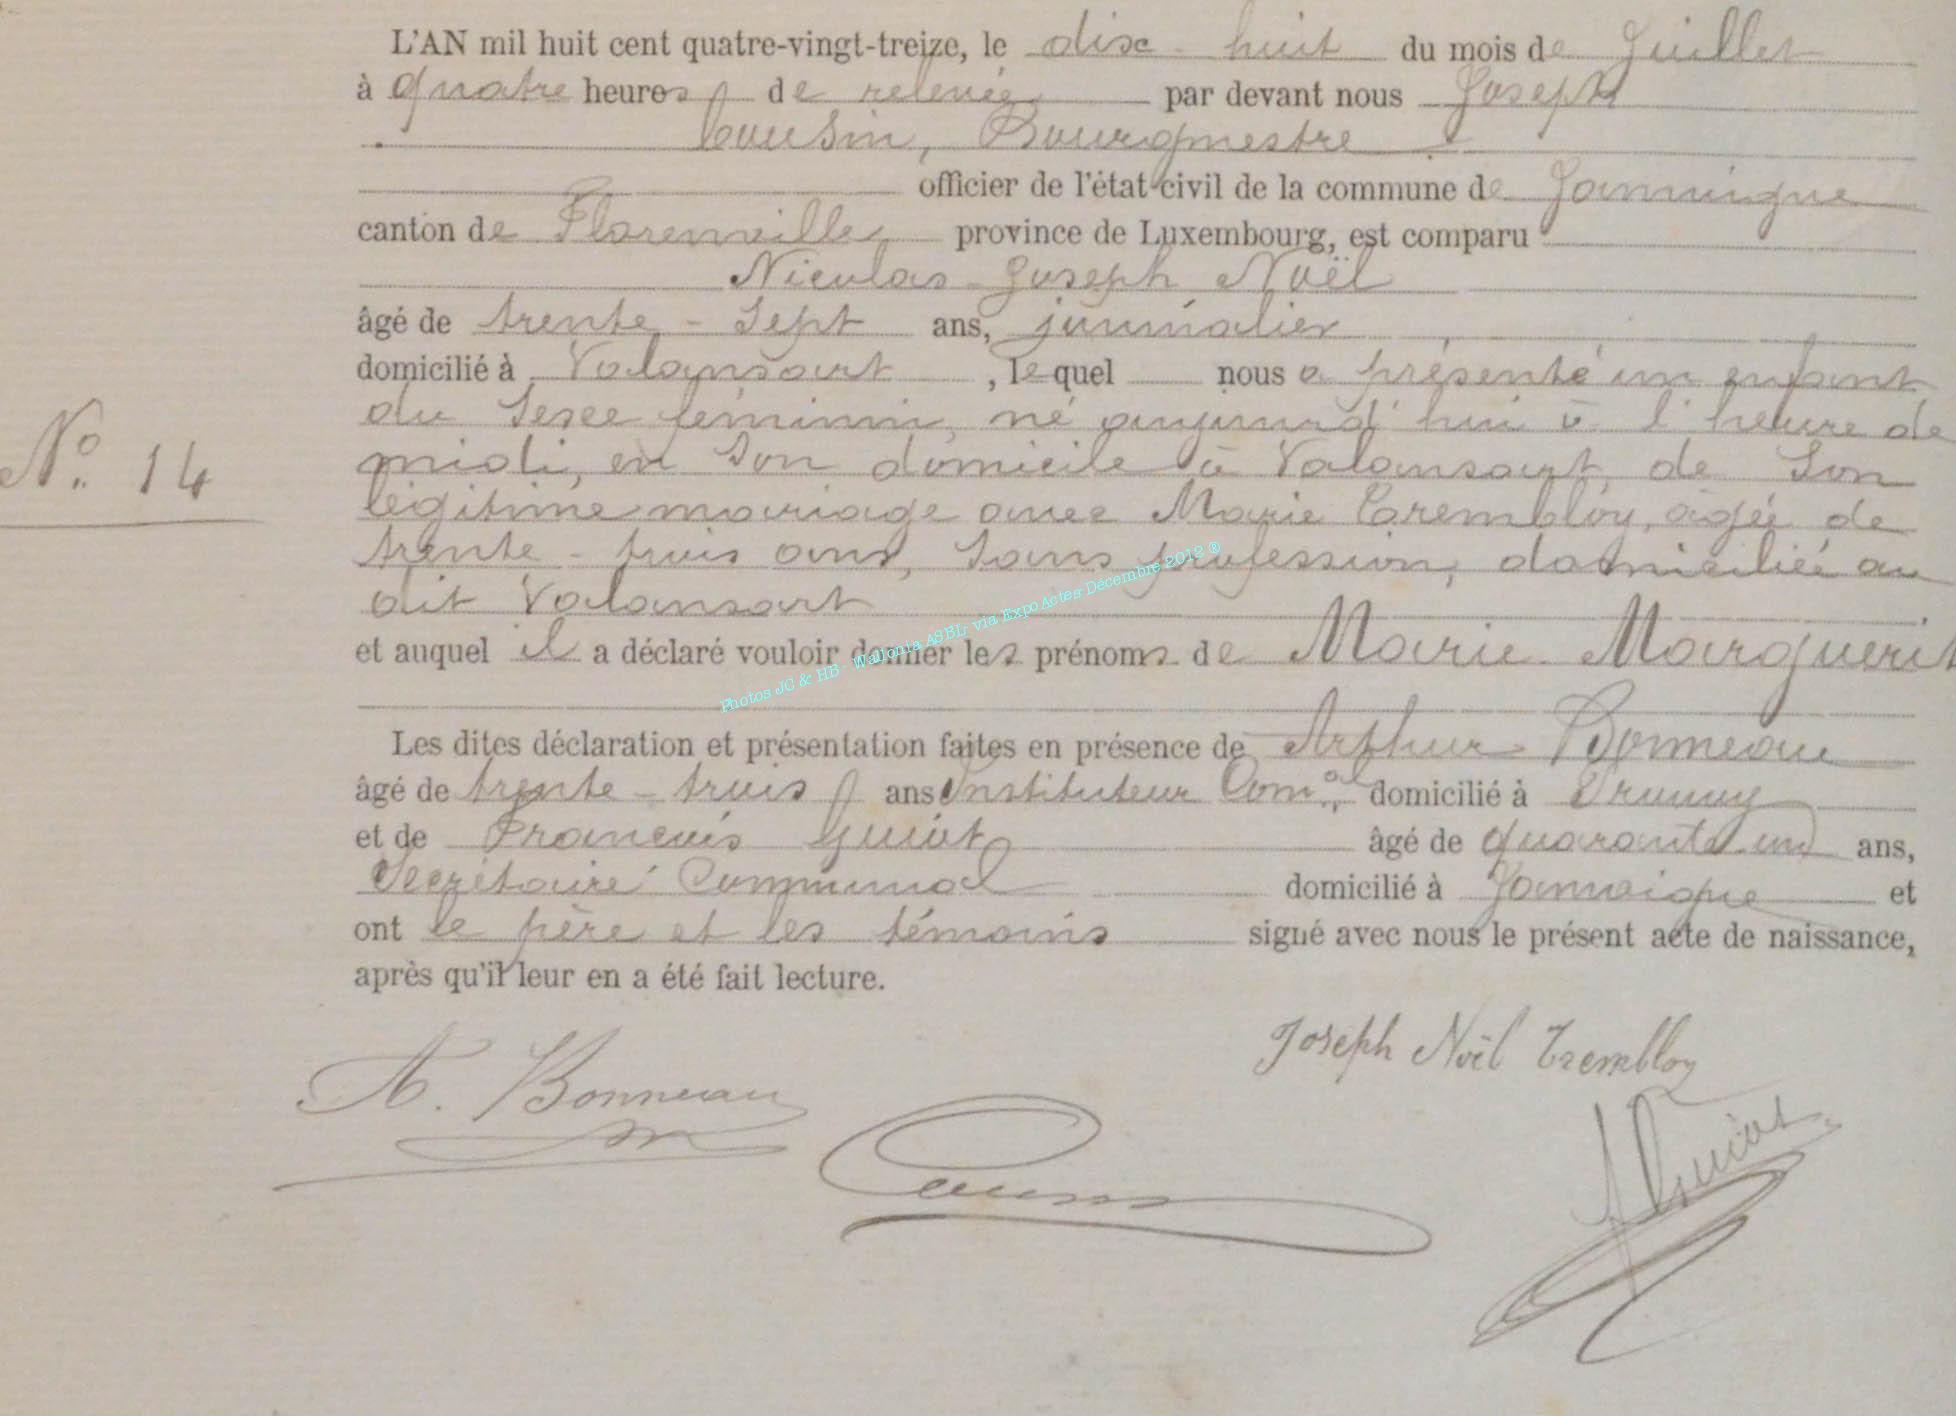 L'AN mil huit cent quatre-vingt-treize, le dix-huit du mois de Juillet
à quatre heures de relevée par devant nous Joseph
Cousin, Bourgmestre
officier de l'état civil de la commune de Jamoigne
canton de Florenville, province de Luxembourg, est comparu
Nicolas-Joseph Noël
âgé de trente-sept ans, journalier
domicilié à Valansart, lequel nous a présenté un enfant
du sexe féminin, né aujourd'hui à l'heure de
midi, en son domicile à Valansart, de son
légitime mariage avec Marie Trembloy, âgée de
trente-trois ans, sans profession, domiciliée au
dit Valansart
et auquel il a déclaré vouloir donner les prénoms de Marie Marguerit
Les dites déclaration et présentation faites en présence de Arthur Bonneau
âgé de trente-trois ans Instituteur Com.al domicilié à Prouvy
et de François Guiot âgé de quarante un ans,
Secrétaire Communal domicilié à Jamoigne et
ont le père et les témoins signé avec nous le présent acte de naissance,
après qu'il leur en a été fait lecture.
No. 14
Photos JC & HB - Wallonia ASBL via ExpoActes Décembre 2012 ®
Joseph Noël Trembloy
A. Bonneau
Cousin
Guiot